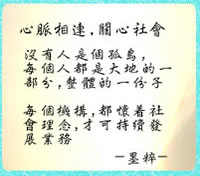 心脈相連,關心社會
沒有人是個孤島,
每個人都是大地的一
部分,整體的一份子
每個機構,都懷着社
會理念,才可持續發
展業務
－墨粹－